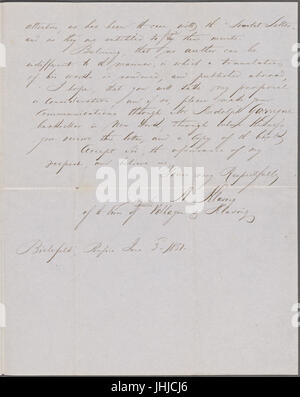 attention as has been the case with the "Scarlet Letter"
and as they are entitled to by their merits.
Believing that no author can be
indifferent to the manner in which a translation
of his work is rendered, and published abroad,
I hope that you will take my proposal
in consideration, and if so, please make
communications through Mr. Rudolph Garrigue
bookseller in New York, through whom
you receive this letter and a copy of the
Accept Sir, the assurance of my
respect and believe me
Yours very Respectfully
A. Klasing
of the firm of Velhagen & Klasing
Bielefeld, 1851.
alamy
Image ID: JHJCJ6
www.alamy.com